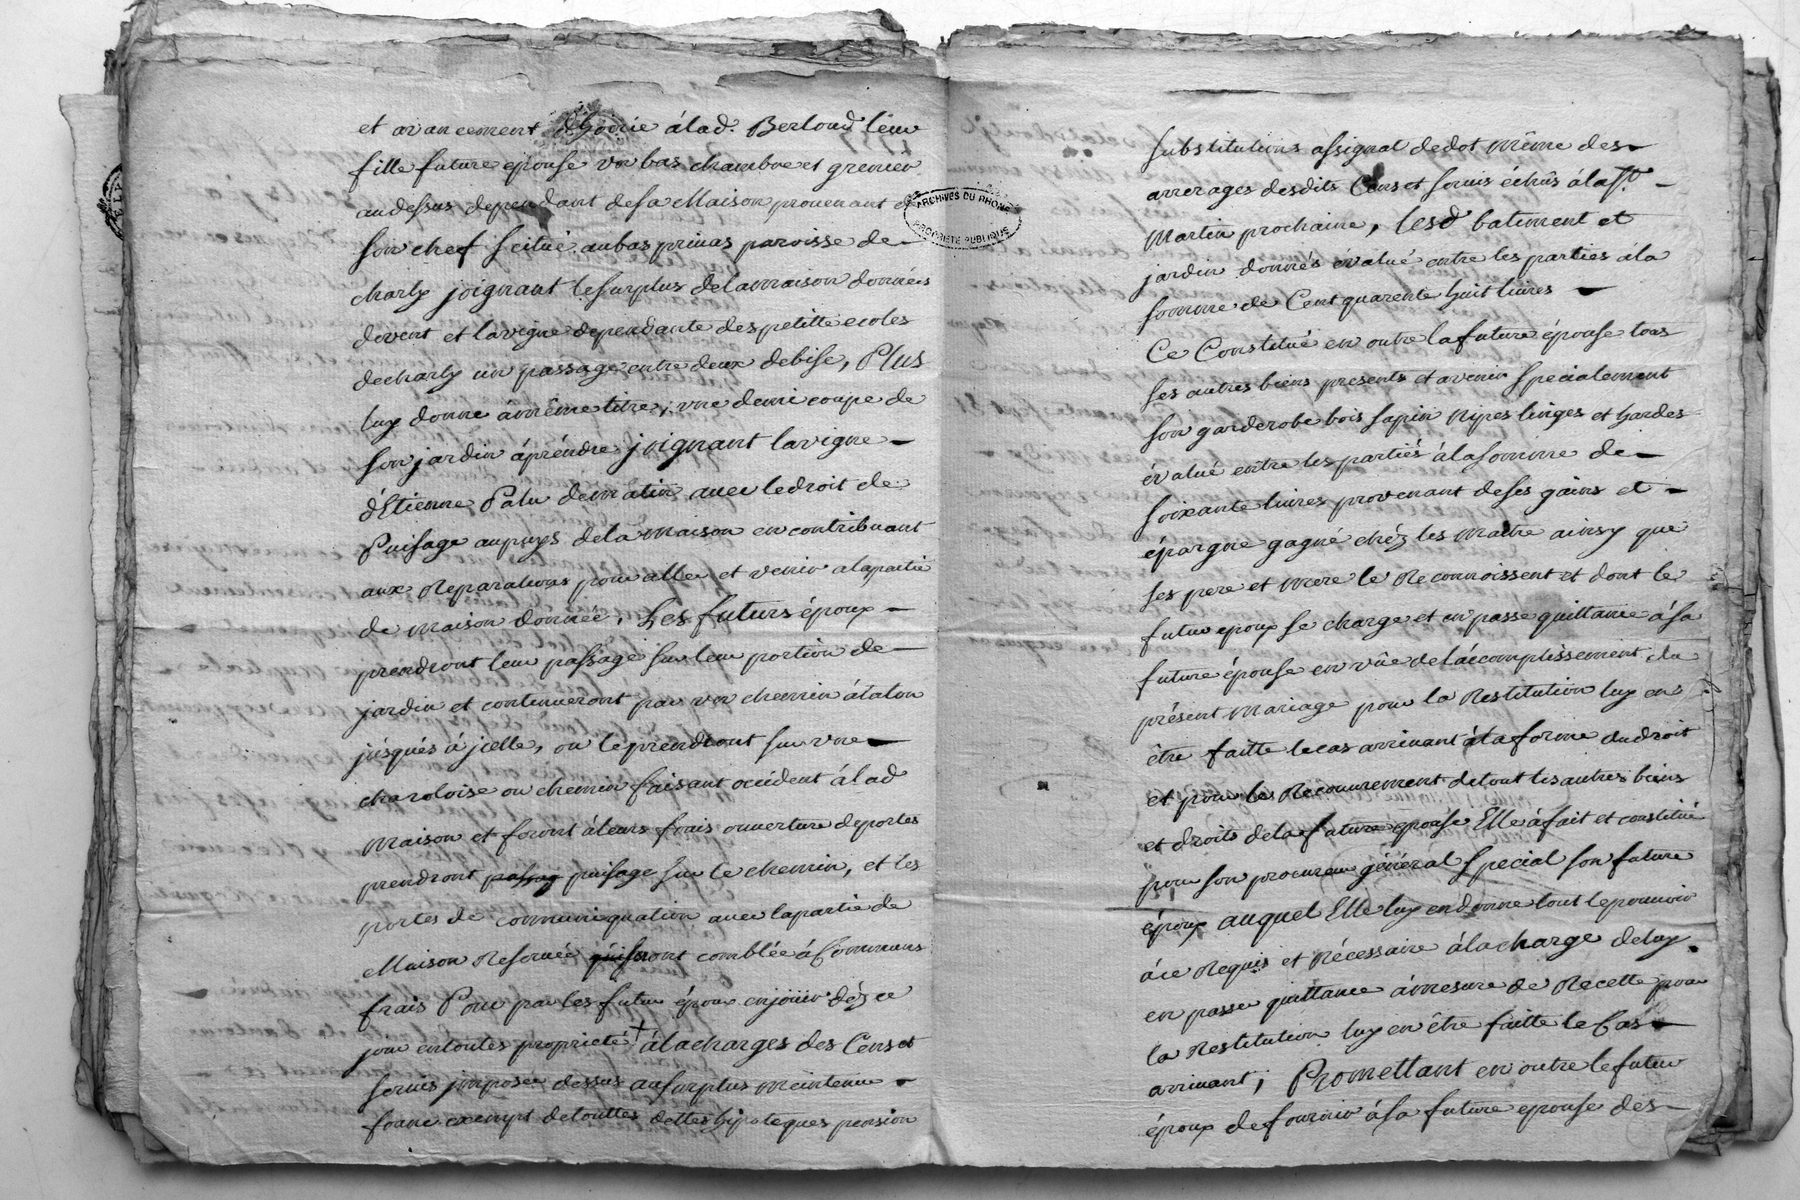 et avancement d'hoirie à lad. Berloud leur
fille future epouse un bas chambre et grenier
au dessus dependant de sa Maison provenant de
son chef scitué au bas privas paroisse de
charly joignant le surplus de la maison données
de vent et la vigne dependante des petitte ecoles
de charly un passage entre deux de bise, Plus
luy donne à même titre, une demi coupe de
son jardin à préndre joignant la vigne
d'Etienne Palu de matin avec le droit de
Puisage au puys de la maison en contribuant
aux Reparations pour aller et venir a la partie
de maison donnée, Les futurs époux
prendront leur passage sur leur portion de
jardin et continueront par un chemin à talon
jusques à jcelle, ou le prendront sur une
charoloise ou chemin faisant occident à lad
Maison et feront à leurs frais ouverture de portes
prendront passag puisage sur le chemin, et les
portes de communiquation avec la partie de
Maison Reservée seront comblée à Communs
frais Pour par les futur époux en jöüir déz ce
jour en toutes proprieté + à la charges des Cens et
servis jmposer dessus au surplus maintenu
franc exempt de touttes dettes hipoteques pension
ARCHIVES DU RHONE
PROPRIETE PUBLIQUE
substitutions assignat de dot même des
arrerages desdits Cens et servis échûs à la St.
Martin prochaine, lesd batiment et
jardin donnés évalué entre les parties à la
somme de Cent quarente huit livres
Ce Constitué en outre la future épouse tous
ses autres biens presents et avenir specialement
son garderobe bois sapin nipes linges et hardes
évalué entre les partiés à la somme de
soixante livres provenant de ses gains et
épargne gagné chéz les maitre ainsy que
ses pere et mere le Reconnoissent et dont le
futur epoux se charge et en passe quittance à sa
future épouse en vûe de l'acomplissement du
présent mariage pour la Restitution luy en
être faitte le cas arrivant à la forme du droit
et pour le Recouvrement de tout les autres biens
et droits de la future epouse Elle à fait et constitué
pour son procureur général special son future
époux auquel Elle luy en donne tout le pouvoir
à ce Requis et Nécessaire à la charge de luy
en passer quittance à mesure de Recette pour
la Restitution luy en être faitte le Cas
arrivant; Promettant en outre le futur
époux de fournir à sa future epouse des